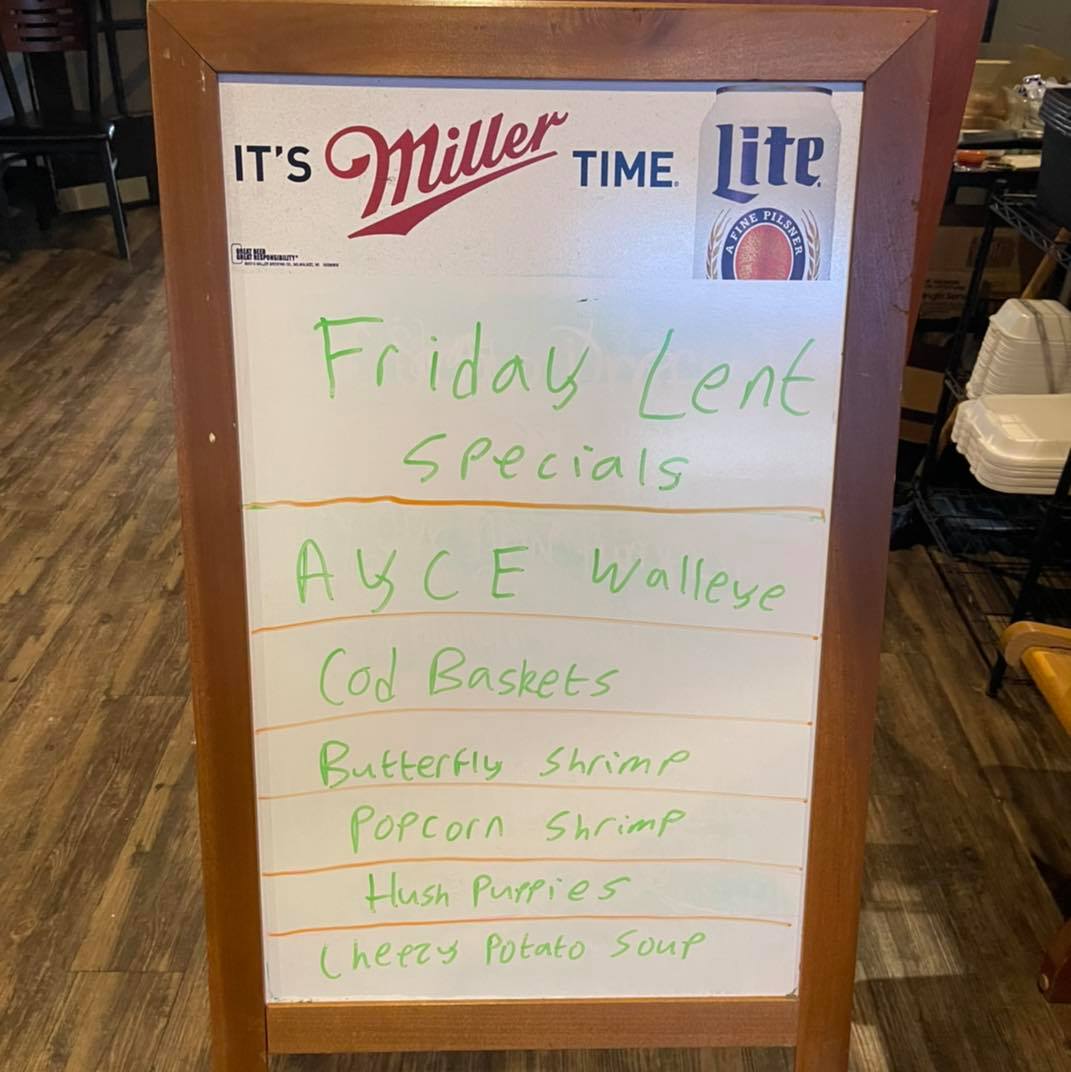 IT'S Miller TIME
Lite
A FINE PILSNER
GREAT BEER
GREAT RESPONSIBILITY
Friday Lent
Specials
AYCE Walleye
Cod Baskets
Butterfly Shrimp
Popcorn Shrimp
Hush Puppies
Cheezy Potato Soup